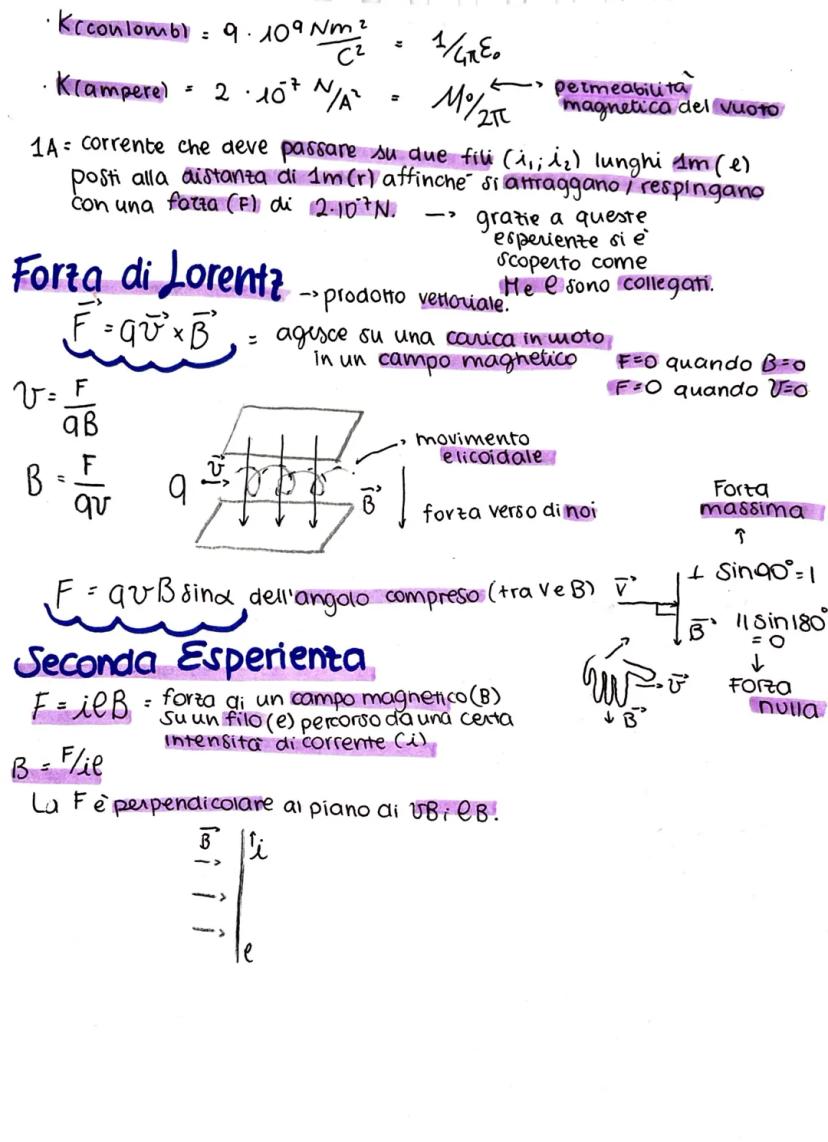 · K(coulomb) = 9 · 10⁹ Nm²/C² = 1/4πε₀
· K(ampere) = 2 · 10⁻⁷ N/A² = μ₀/2π ↔ permeabilità magnetica del vuoto
1A = corrente che deve passare su due fili (i₁; i₂) lunghi 1m (l)
posti alla distanza di 1m (r) affinché si attraggano / respingano
con una forza (F) di 2·10⁻⁷N. → grazie a queste
esperienze si è
scoperto come
M e e sono collegati.
Forza di Lorentz → prodotto vettoriale.
F⃗ = qv⃗ × B⃗ = agisce su una carica in moto
in un campo magnetico
F=0 quando B=0
F=0 quando v=0
v = F/qB
B = F/qv
q v⃗ B⃗
movimento
elicoidale
forza verso di noi
Forza
massima
F = qvB sinα dell'angolo compreso (tra v e B)
v⃗ B⃗
⊥ sin90°=1
|| sin180°
= 0
Forza
nulla
v⃗
B⃗
Seconda Esperienza
F = ilB = forza di un campo magnetico (B)
su un filo (l) percorso da una certa
intensità di corrente (i)
B = F/il
La F è perpendicolare al piano di vB; lB.
B⃗ i
l